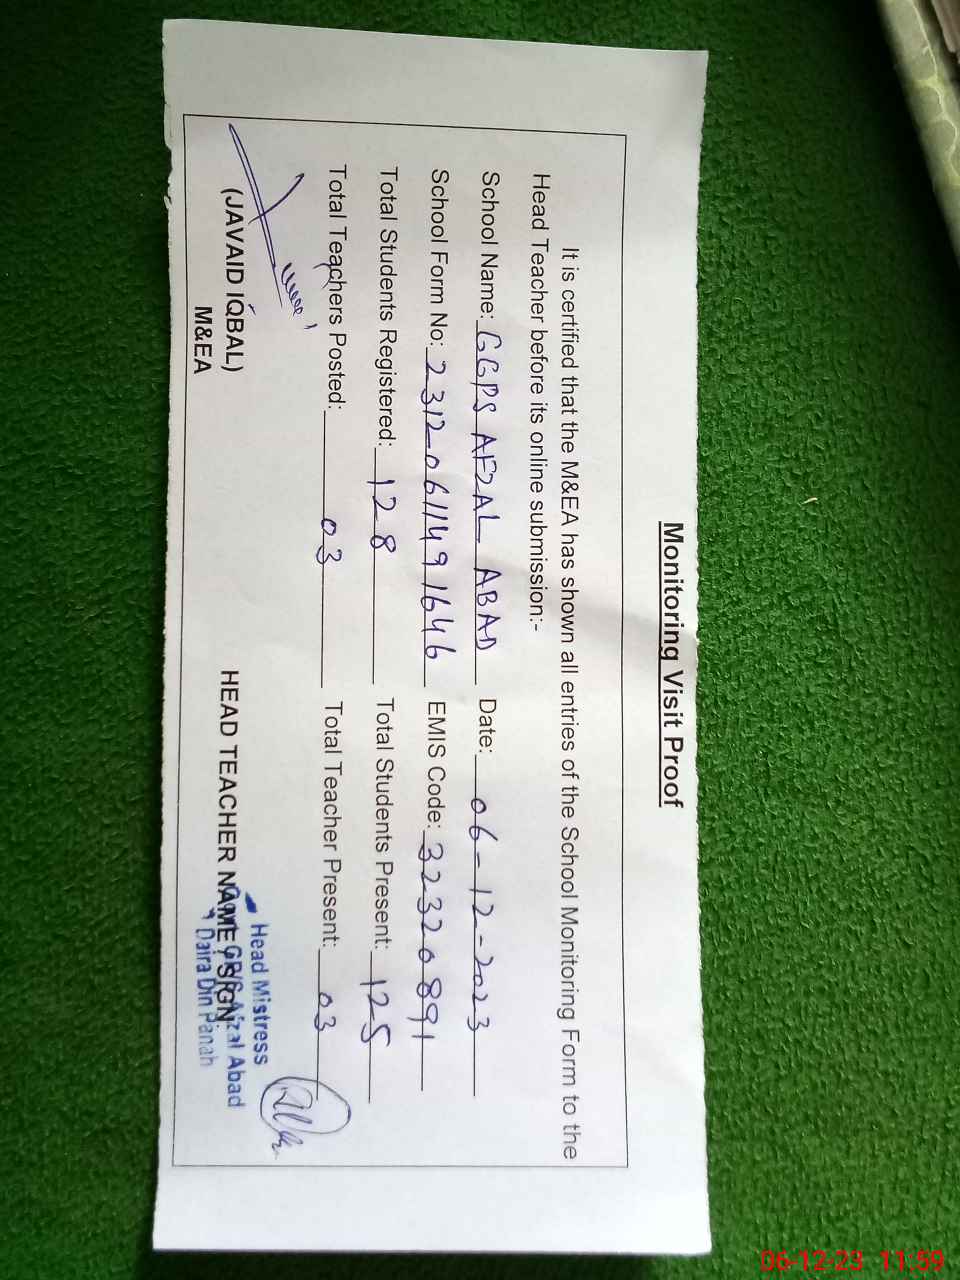 Monitoring Visit Proof
It is certified that the M&EA has shown all entries of the School Monitoring Form to the
Head Teacher before its online submission:-
School Name: GGPS AFZAL ABAD Date: 06-12-2023
School Form No: 2312061149 1646 EMIS Code: 32320891
Total Students Registered: 128 Total Students Present: 125
Total Teachers Posted: 03 Total Teacher Present: 03
(JAVAID IQBAL)
M&EA
HEAD TEACHER NAME / SIGN
Head Mistress
Govt. GP/S Afzal Abad
Daira Din Panah
06-12-23 11:59